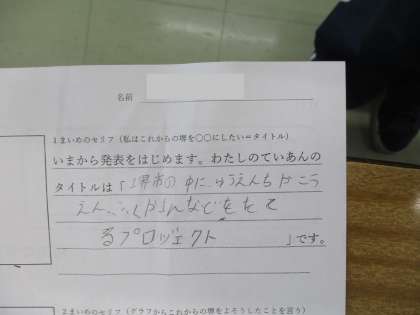 名前
1まいめのセリフ（私はこれからの堺を〇〇にしたい＝タイトル）
いまから発表をはじめます。わたしのていあんの
タイトルは「堺市の中に、ゆうえんちやこう
えん、
などをたて
るプロジェクト 」です。
2まいめのセリフ（グラフからこれからの堺をよそうしたことを言う）